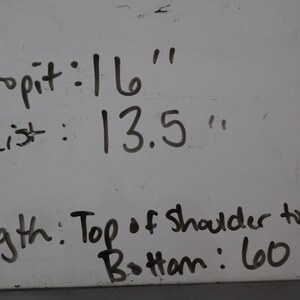 opit: 16"
ist: 13.5"
gth: Top of Shoulder to
Bottom: 60